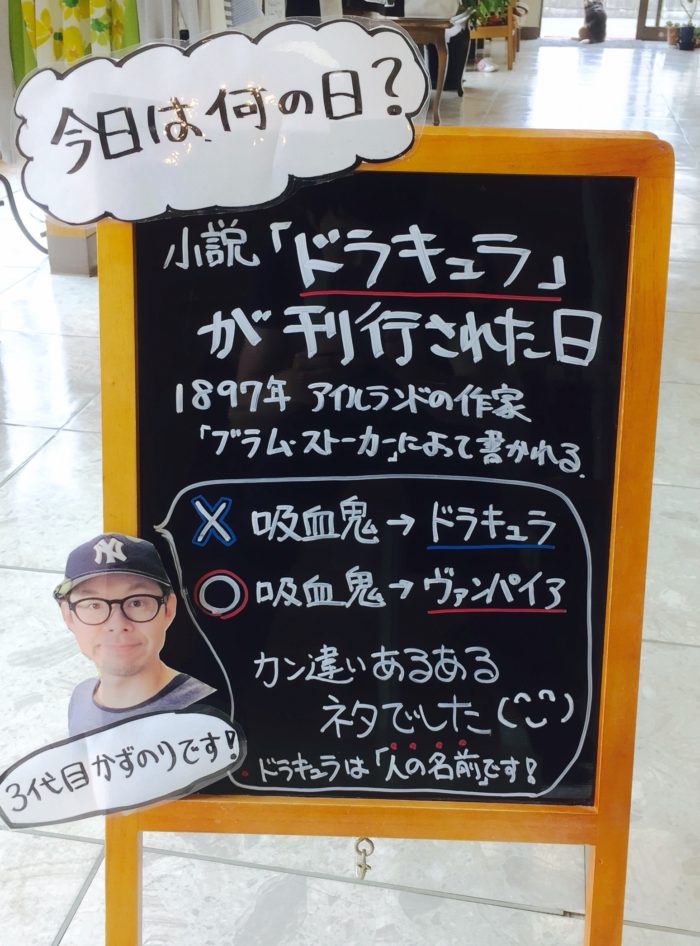 今日は何の日?
小説「ドラキュラ」
が刊行された日
1897年 アイルランドの作家
「ブラム・ストーカー」によって書かれる.
X 吸血鬼→ドラキュラ
○ 吸血鬼→ヴァンパイア
カン違いあるある
ネタでした(^‿^)
・ドラキュラは「人の名前」です!
NY
3代目かずのりです!